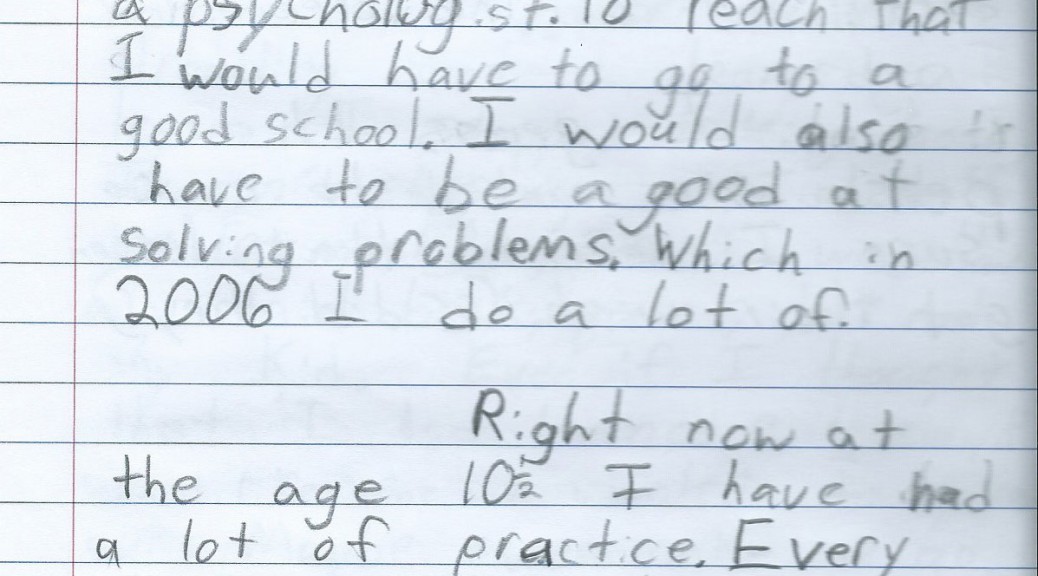 a psychologist. To reach that
I would have to go to a
good school. I would also
have to be a good at
solving problems. Which in
2006 I do a lot of.
Right now at
the age 10½ I have had
a lot of practice. Every